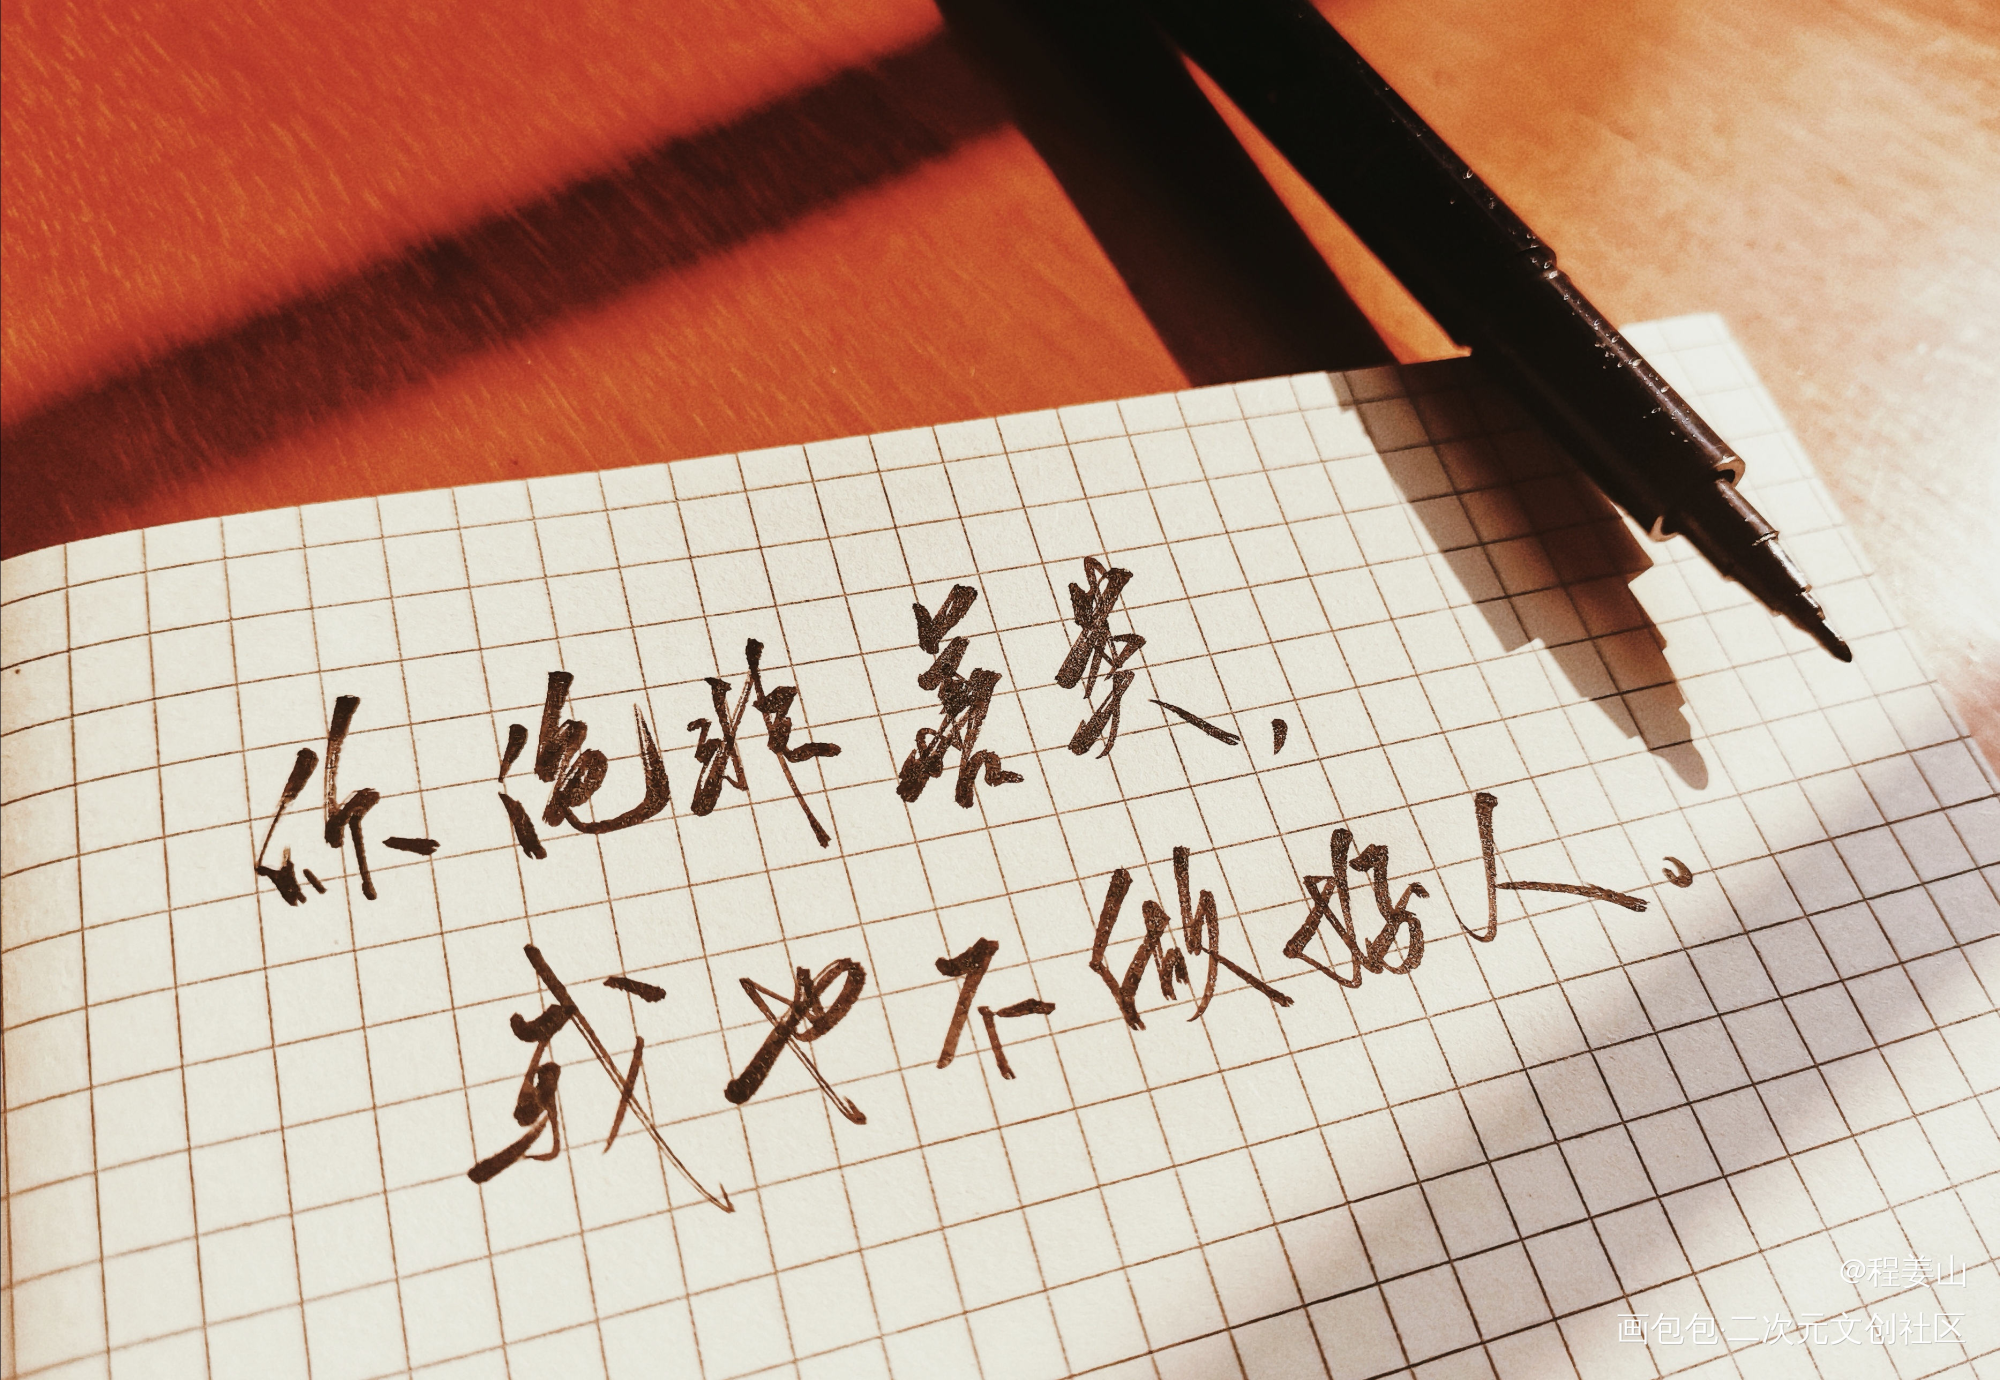 你绝非善类，
我也不做好人。
@程姜山
画包包·二次元文创社区